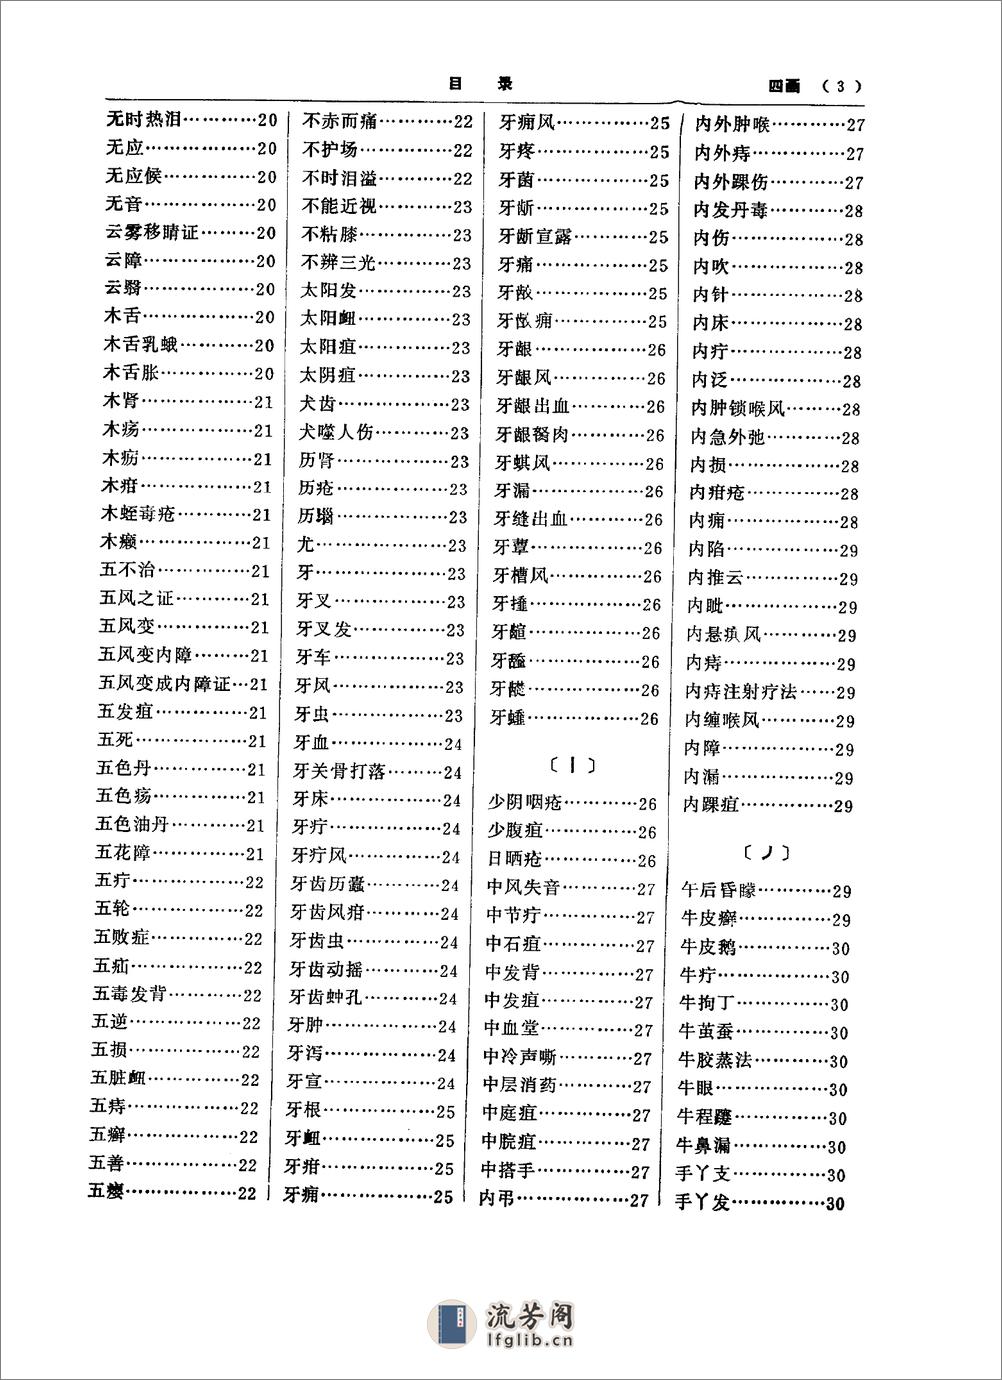 目 录 四画 （3）
无时热泪…………20
无应………………20
无应候……………20
无音………………20
云雾移睛证………20
云障………………20
云翳………………20
木舌………………20
木舌乳蛾…………20
木舌胀……………20
木肾………………21
木疡………………21
木疬………………21
木疳………………21
木蛭毒疮…………21
木癞………………21
五不治……………21
五风之证…………21
五风变……………21
五风变内障………21
五风变成内障证…21
五发疽……………21
五死………………21
五色丹……………21
五色疡……………21
五色油丹…………21
五花障……………21
五疔………………22
五轮………………22
五败症……………22
五疝………………22
五毒发背…………22
五逆………………22
五损………………22
五脏衄……………22
五痔………………22
五癣………………22
五善………………22
五瘿………………22
不赤而痛…………22
不护场……………22
不时泪溢…………22
不能近视…………23
不粘膝……………23
不辨三光…………23
太阳发……………23
太阳衄……………23
太阳疽……………23
太阴疽……………23
犬齿………………23
犬噬人伤…………23
历肾………………23
历疮………………23
历㿔………………23
尤…………………23
牙…………………23
牙叉………………23
牙叉发……………23
牙车………………23
牙风………………23
牙虫………………23
牙血………………24
牙关骨打落………24
牙床………………24
牙疔………………24
牙疔风……………24
牙齿历蠹…………24
牙齿风疳…………24
牙齿虫……………24
牙齿动摇…………24
牙齿蚛孔…………24
牙肿………………24
牙泻………………24
牙宣………………24
牙根………………25
牙衄………………25
牙疳………………25
牙痈………………25
牙痈风……………25
牙疼………………25
牙菌………………25
牙龂………………25
牙龂宣露…………25
牙痛………………25
牙………………25
牙痈……………25
牙龈………………26
牙龈风……………26
牙龈出血…………26
牙龈胬肉…………26
牙蜞风……………26
牙漏………………26
牙缝出血…………26
牙蕈………………26
牙槽风……………26
牙………………26
牙………………26
牙………………26
牙………………26
牙………………26
〔丨〕
少阴咽疮…………26
少腹疽……………26
日晒疮……………26
中风失音…………27
中节疔……………27
中石疽……………27
中发背……………27
中发疽……………27
中血堂……………27
中冷声嘶…………27
中层消药…………27
中庭疽……………27
中脘疽……………27
中搭手……………27
内弔………………27
内外肿喉…………27
内外痔……………27
内外踝伤…………27
内发丹毒…………28
内伤………………28
内吹………………28
内针………………28
内床………………28
内疔………………28
内泛………………28
内肿锁喉风………28
内急外弛…………28
内损………………28
内疳疮……………28
内痈………………28
内陷………………29
内推云……………29
内眦………………29
内悬痈风…………29
内痔………………29
内痔注射疗法……29
内缠喉风…………29
内障………………29
内漏………………29
内踝疽……………29
〔丿〕
午后昏矇…………29
牛皮癣……………29
牛皮鹅……………30
牛疔………………30
牛拘丁……………30
牛茧蚕……………30
牛胶蒸法…………30
牛眼………………30
牛程蹇……………30
牛鼻漏……………30
手丫支……………30
手丫发……………30
流芳阁
lfglib.cn